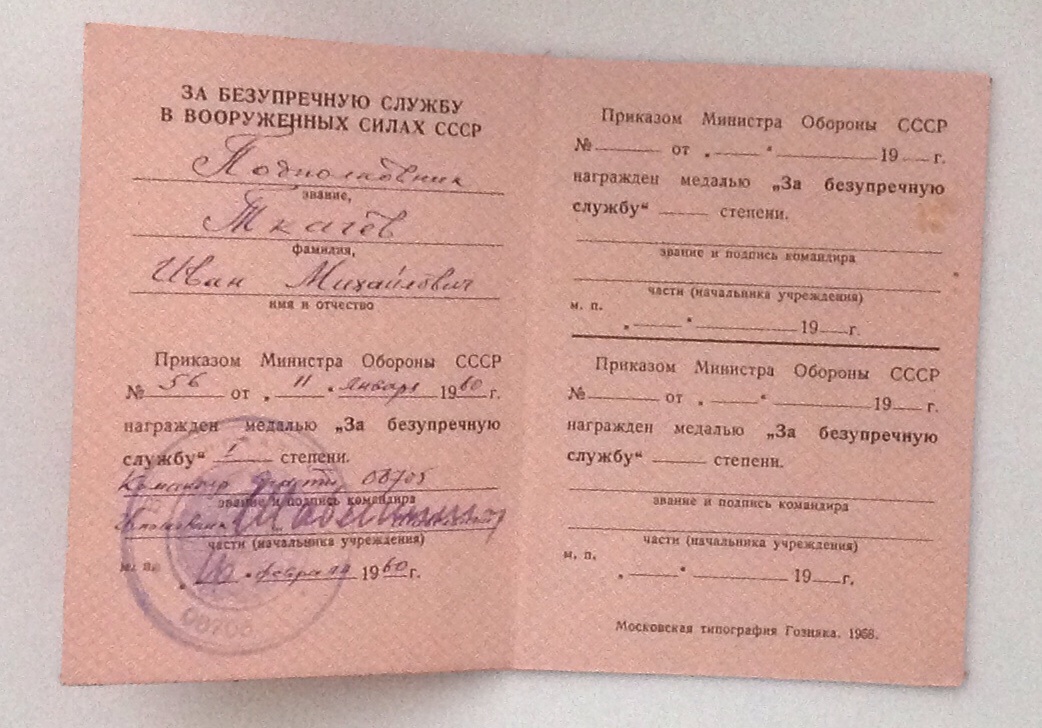 ЗА БЕЗУПРЕЧНУЮ СЛУЖБУ
В ВООРУЖЕННЫХ СИЛАХ СССР
Подполковник
звание,
Ткачев
фамилия,
Иван Михайлович
имя и отчество
Приказом Министра Обороны СССР
№ 56 от „ 11 “ января 19 60 г.
награжден медалью „За безупречную
службу“ I степени.
Командир части 06705
звание и подпись командира
части (начальника учреждения)
м. п.
„ “ февраля 19 60 г.
Приказом Министра Обороны СССР
№ от „ “ 19 г.
награжден медалью „За безупречную
службу“ степени.
звание и подпись командира
части (начальника учреждения)
м. п.
„ “ 19 г.
Приказом Министра Обороны СССР
№ от „ “ 19 г.
награжден медалью „За безупречную
службу“ степени.
звание и подпись командира
части (начальника учреждения)
м. п.
„ “ 19 г.
Московская типография Гознака. 1958.